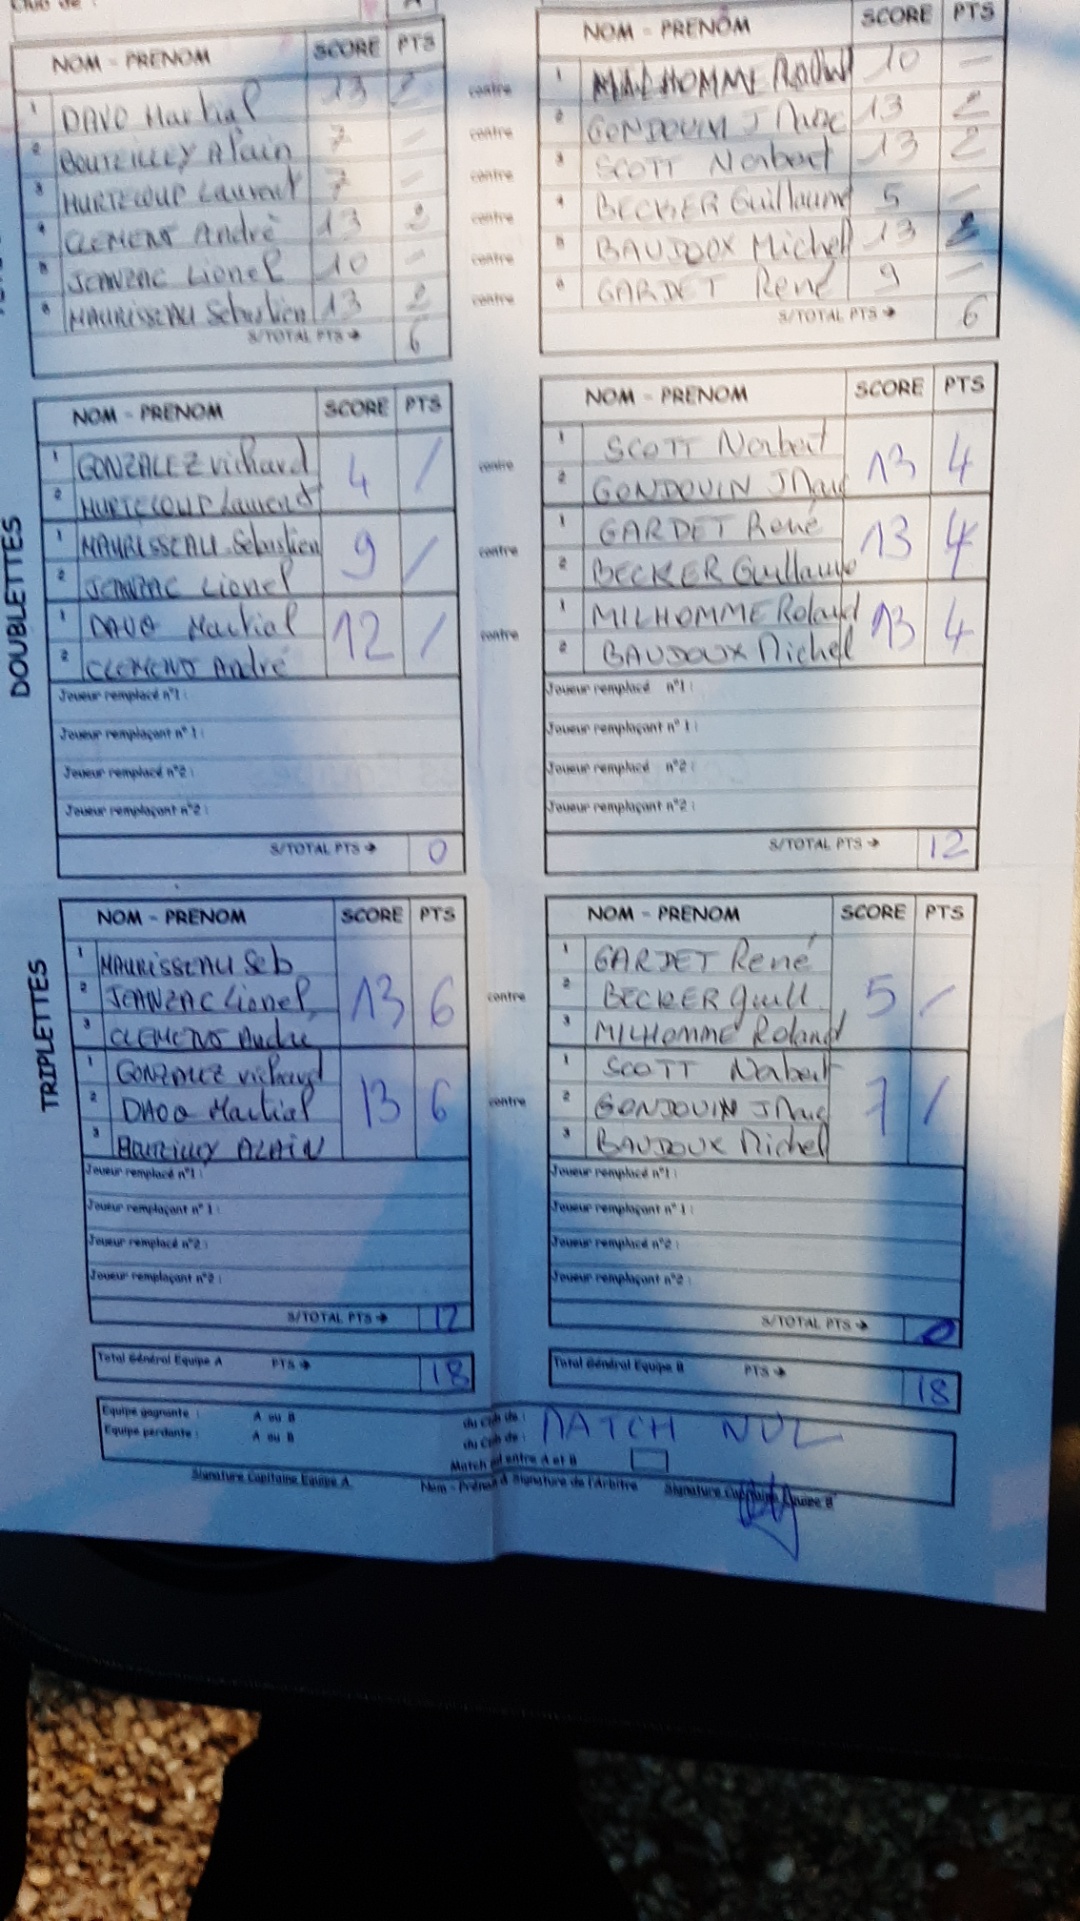 Club de :
A
NOM - PRENOM SCORE PTS
1 DAVO Martial 13 2
2 BOUTEILLEY Alain 7 —
3 HURTECOUP Laurent 7 —
4 CLEMENT André 13 2
5 JEANZAC Lionel 10 —
6 MAURISSEAU Sébastien 13 2
S/TOTAL PTS → 6
contre
contre
contre
contre
contre
contre
NOM - PRENOM SCORE PTS
1 MILHOMME Roland 10 —
2 GONDOUIN J Marc 13 2
3 SCOTT Norbert 13 2
4 BECKER Guillaume 5 —
5 BAUDOUX Michel 13 2
6 GARDET René 9 —
S/TOTAL PTS → 6
DOUBLETTES
NOM - PRENOM SCORE PTS
1 GONZALEZ richard 4 /
2 HURTECOUP Laurent
1 MAURISSEAU Sébastien 9 /
2 JEANZAC Lionel
1 DAVO Martial 12 /
2 CLEMENT André
Joueur remplacé n°1 :
Joueur remplaçant n° 1 :
Joueur remplacé n°2 :
Joueur remplaçant n°2 :
S/TOTAL PTS → 0
contre
contre
contre
NOM - PRENOM SCORE PTS
1 SCOTT Norbert 13 4
2 GONDOUIN J Marc
1 GARDET René 13 4
2 BECKER Guillaume
1 MILHOMME Roland 13 4
2 BAUDOUX Michel
Joueur remplacé n°1 :
Joueur remplaçant n° 1 :
Joueur remplacé n°2 :
Joueur remplaçant n°2 :
S/TOTAL PTS → 12
TRIPLETTES
NOM - PRENOM SCORE PTS
1 MAURISSEAU Seb 13 6
2 JEANZAC Lionel
3 CLEMENT André
1 GONZALEZ richard 13 6
2 DAVO Martial
3 BOUTEILLEY ALAIN
Joueur remplacé n°1 :
Joueur remplaçant n° 1 :
Joueur remplacé n°2 :
Joueur remplaçant n°2 :
S/TOTAL PTS → 12
contre
contre
NOM - PRENOM SCORE PTS
1 GARDET René 5 /
2 BECKER Guill
3 MILHOMME Roland
1 SCOTT Norbert 7 /
2 GONDOUIN J Marc
3 BAUDOUX Michel
Joueur remplacé n°1 :
Joueur remplaçant n° 1 :
Joueur remplacé n°2 :
Joueur remplaçant n°2 :
S/TOTAL PTS → 0
Total Général Equipe A PTS → 18
Total Général Equipe B PTS → 18
Equipe gagnante : A ou B du Club de : MATCH NUL
Equipe perdante : A ou B du Club de :
Match nul entre A et B
Signature Capitaine Equipe A Nom - Prénom & Signature de l'Arbitre Signature Capitaine Equipe B